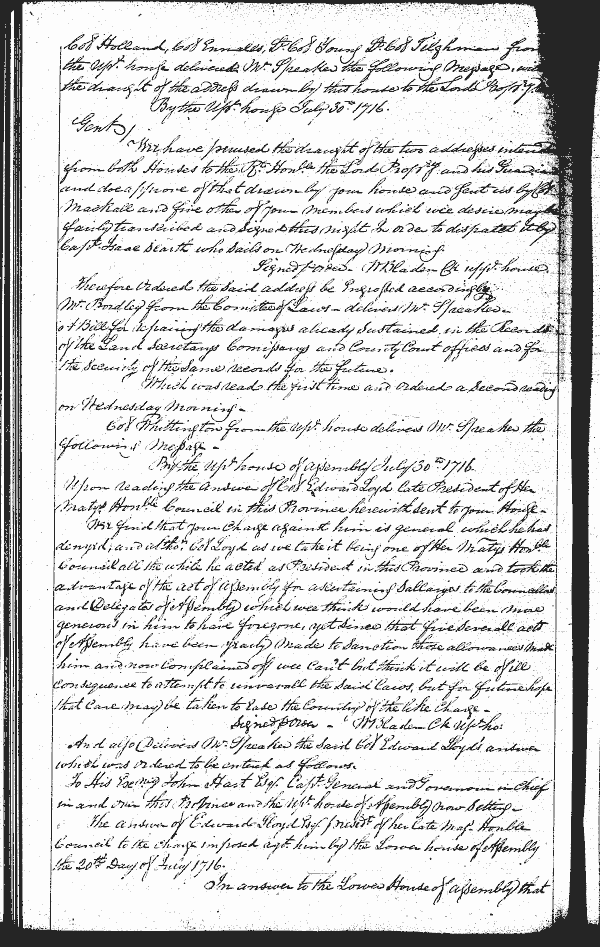 Col Holland, Col Ennalls, Lt Col Young Lt Col Tilghman from
the Upr. house delivered Mr Speaker the following Message, with
the draught of the address drawn by this house to the Lords Propry &
By the Upr. house July 30th 1716.
Gent)
Wee have perused the draught of the two addresses intended
from both Houses to the Rt. Honble the Lord Propry and his Guardian
and doe approve of that drawn by your house and sent us by
Mackall and five other of your members which wee desire may be
fairly transcribed and signed this night In order to dispatch it by
Capt. Isaac Dearth who sails on Wednesday Morning
Signed p order - W Bladen Ck uppr. house
Therefore Ordered the said address be Ingrossed accordingly
Mr. Bordley from the Comittee of Laws - delivers Mr. Speaker -
a Bill for repairing the damages already sustained, in the Records
of the Land Secretarys Comissarys and County Court offices and for
the Security of the same records for the future.
Which was read the first time and ordered a second reading
on Wednesday Morning -
Col Whittington from the upr. house delivers Mr. Speaker the
following Message -
By the Upr. house of Assembly July 30th 1716
Upon reading the Answer of Col Edward Loyd late President of Her
Matys Honble Council in this Province herewith sent to your House -
Wee find that your Charge against him is general which he has
denyed, and altho' Col Loyd as we take it being one of Her Matys Honble
Council all the while he acted as President in this Province and took the
advantage of the act of Assembly for ascertaining Sallarys to the Councellors
and Delegates of Assembly which wee think would have been more
generous in him to have foregone, yet since that five severall acts
of Assembly have been made to Sanction those allowances made
him and now complained off wee can't but think it will be of ill
consequence to attempt to unravell the said Laws, but for future hope
that Care may be taken to Ease the Country of the like Charge -
Signed p Order - W Bladen Ck Up. ho:
And also Delivers Mr Speaker the said Col Edward Lloyds answer
which was ordered to be entred as follows.
To His Excncy John Hart Esqr. Capt. General and Governour in Chief
in and over this Province and the Upr. house of Assembly now Sitting -
The Answer of Edward Lloyd Esqr. presidt. of her late Majs. Honble
Council to the charge imposed agt. him by the Lower house of Assembly
the 20th Day of July 1716.
In answer to the Lower House of Assembly that